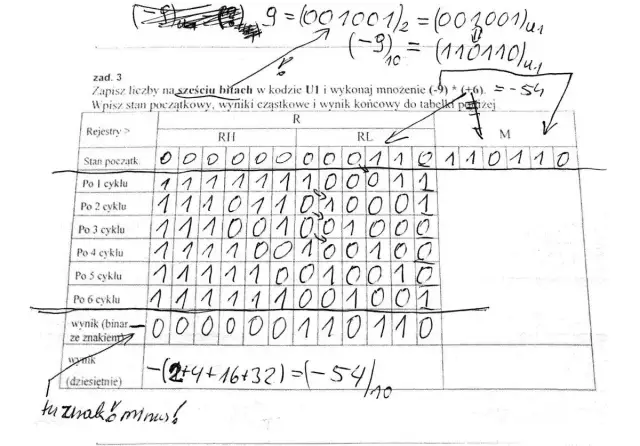 9 = (001001)₂ = (001001)U1
(-9)₁₀ = (110110)U1
zad. 3
Zapisz liczby na sześciu bitach w kodzie U1 i wykonaj mnożenie (-9) * (+6). = -54
Wpisz stan początkowy, wyniki cząstkowe i wynik końcowy do tabelki poniżej
R
Rejestry > RH RL M
Stan początk. 0 0 0 0 0 0 0 0 0 1 1 0 1 1 0 1 1 0
Po 1 cyklu 1 1 1 1 1 1 1 0 0 0 1 1
Po 2 cyklu 1 1 1 0 1 1 0 1 0 0 0 1
Po 3 cyklu 1 1 1 0 0 1 0 0 1 0 0 0
Po 4 cyklu 1 1 1 1 0 0 1 0 0 1 0 0
Po 5 cyklu 1 1 1 1 1 0 0 1 0 0 1 0
Po 6 cyklu 1 1 1 1 1 1 0 0 1 0 0 1
wynik (binar. ze znakiem) - 0 0 0 0 0 0 1 1 0 1 1 0
wynik (dziesiętnie) -(2+4+16+32) = (-54)₁₀
tu znak minus!